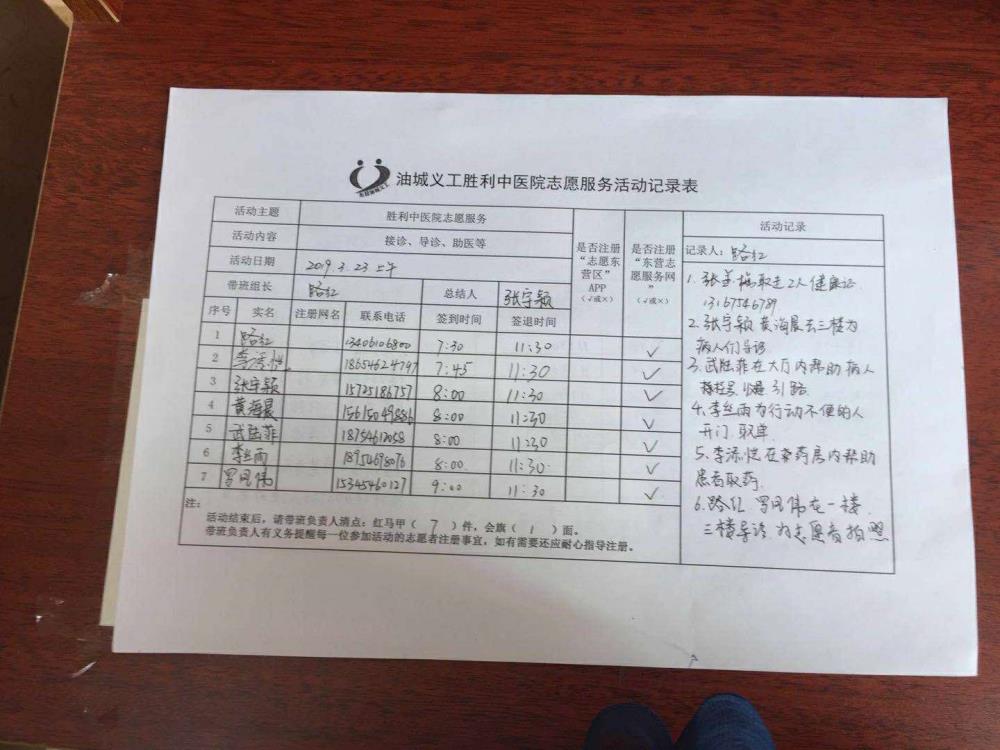 油城义工胜利中医院志愿服务活动记录表
东营油城义工
活动主题 胜利中医院志愿服务
活动内容 接诊、导诊、助医等
活动日期 2019.3.23 上午
带班组长 路红 总结人 张宇颖
序号 实名 注册网名 联系电话 签到时间 签退时间
是否注册“志愿东营区”APP（√或×）
是否注册“东营志愿服务网”（√或×）
1 路红 13406106800 7:30 11:30 √
2 李添恺 18654624797 7:45 11:30 √
3 张宇颖 15725186757 8:00 11:30 √
4 黄海晨 15615049886 8:00 11:30 √
5 武陆菲 18754612058 8:00 11:30 √
6 李丝雨 18954698076 8:00 11:30 √
7 罗凤伟 15345460127 9:00 11:30 √
注：
活动结束后，请带班负责人清点：红马甲（ 7 ）件，会旗（ 1 ）面。
带班负责人有义务提醒每一位参加活动的志愿者注册事宜，如有需要还应耐心指导注册。
活动记录
记录人：路红
1. 张美梅取走2人健康证
13167546789
2. 张宇颖 黄海晨去三楼为
病人们导诊
3. 武陆菲在大厅内帮助病人
引路
4. 李丝雨为行动不便的人
开门.取单.
5. 李添恺在拿药房内帮助
患者取药.
6. 路红 罗凤伟在一楼.
三楼导诊 为志愿者拍照